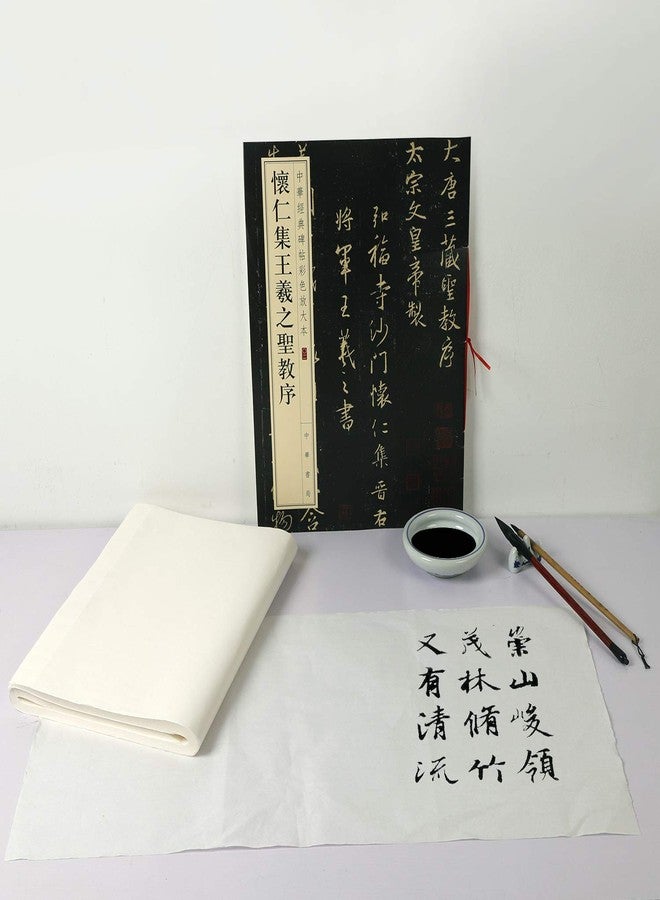 大唐三藏聖教序
太宗文皇帝製
弘福寺沙门懐仁集晋右
将軍王羲之書
中華經典碑帖彩色放大本
懷仁集王羲之聖教序
中華書局
崇山峻領
茂林脩竹
又有清流